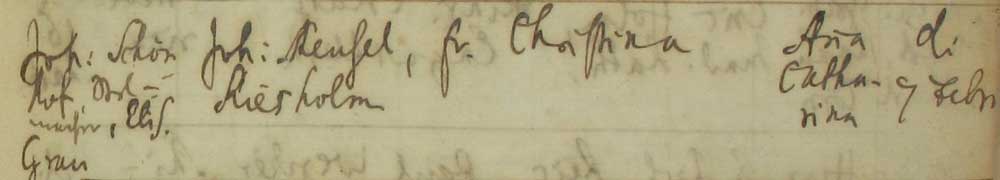 Joh: Schön Joh: Meusel, fr. Christina Aña d.
Kof, Stel= Kiesholm Catha- 7 Febr
macher, Elis. rina
Grau